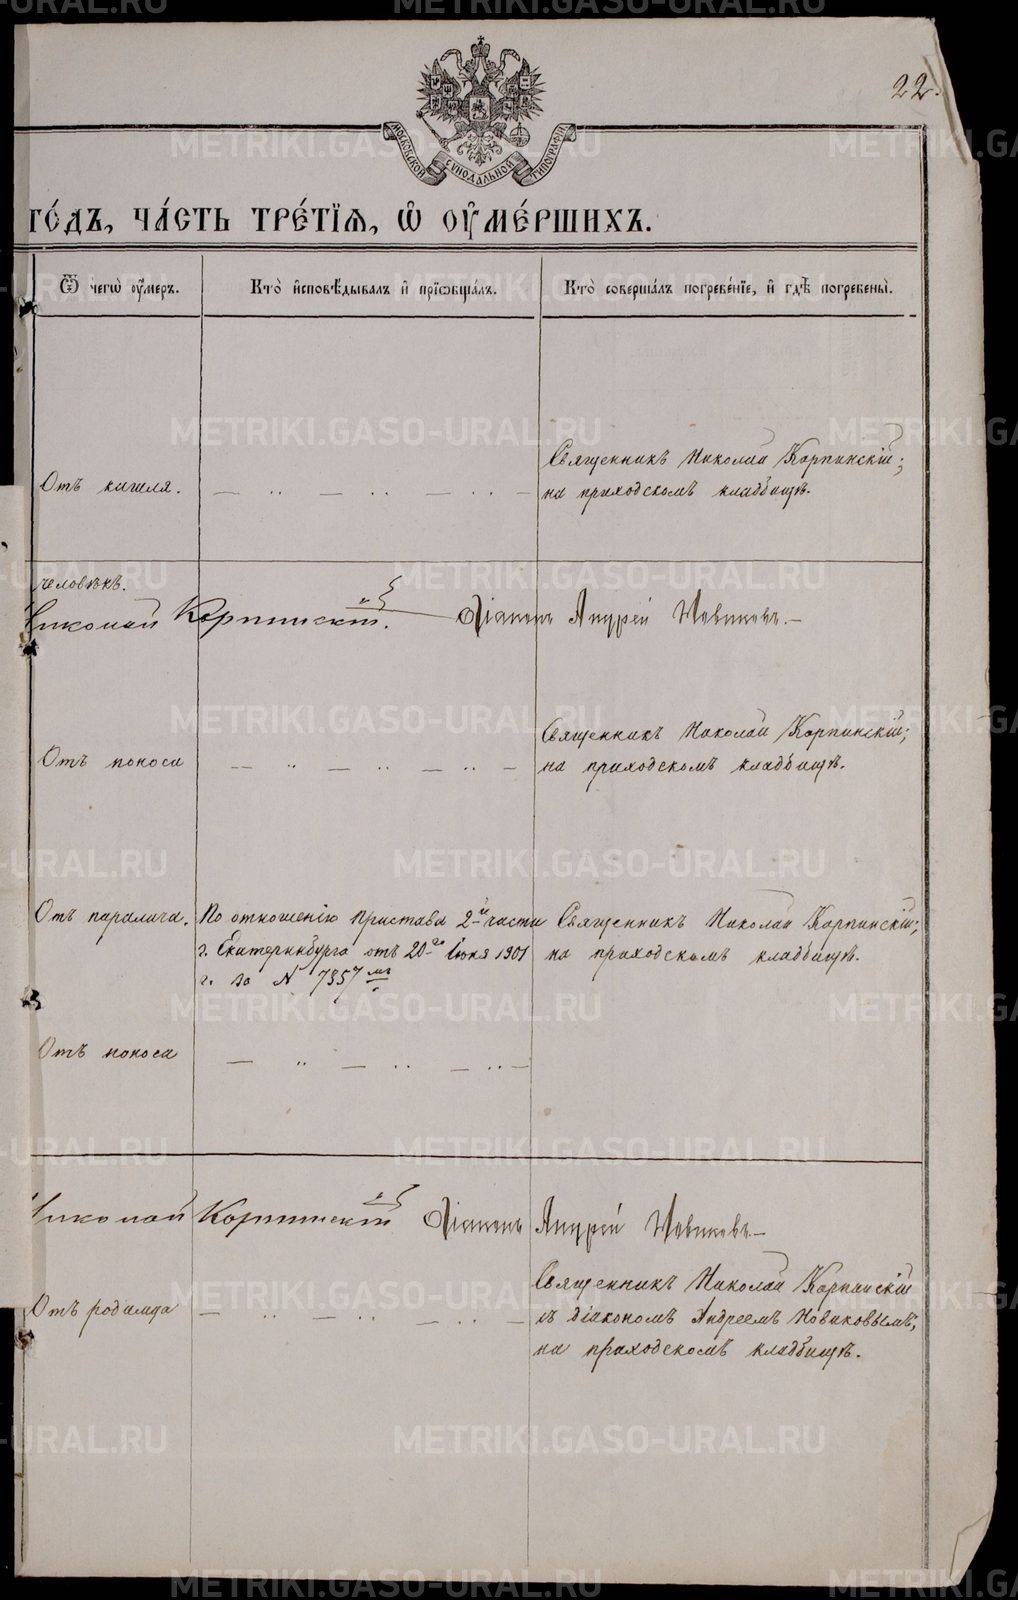 22.
МОСКОВСКОЙ СѴНОДАЛЬНОЙ ТИПОГРАФІИ
го́дъ, ча́сть тре́тїѧ, ѽ оу҆ме́ршихъ.
Ѿ чегѡ̀ оу҆́меръ.
Кто̀ и҆сповѣ́дывалъ и҆ прїѡбща́лъ.
Кто̀ соверша́лъ погребе́нїе, и҆ гдѣ̀ погребены̀.
Отъ кашля.
— ,, — ,, — ,, —
Священникъ Николай Карпинскій;
на приходскомъ кладбищѣ.
человѣкъ.
Николай Карпинскій. Діаконъ Андрей Новиковъ.—
Отъ поноса
— ,, — ,, — ,, —
Священникъ Николай Карпинскій;
на приходскомъ кладбищѣ.
Отъ паралича.
По отношенію Пристава 2-й части
г. Екатеринбурга отъ 20-го Іюня 1901
г. за № 7357-мъ
Священникъ Николай Карпинскій;
на приходскомъ кладбищѣ.
Отъ поноса
— ,, — ,, — ,, —
Николай Карпинскій Діаконъ Андрей Новиковъ.—
Отъ родимца
— ,, — ,, — ,, —
Священникъ Николай Карпинскій
съ діакономъ Андреемъ Новиковымъ;
на приходскомъ кладбищѣ.
METRIKI.GASO-URAL.RU